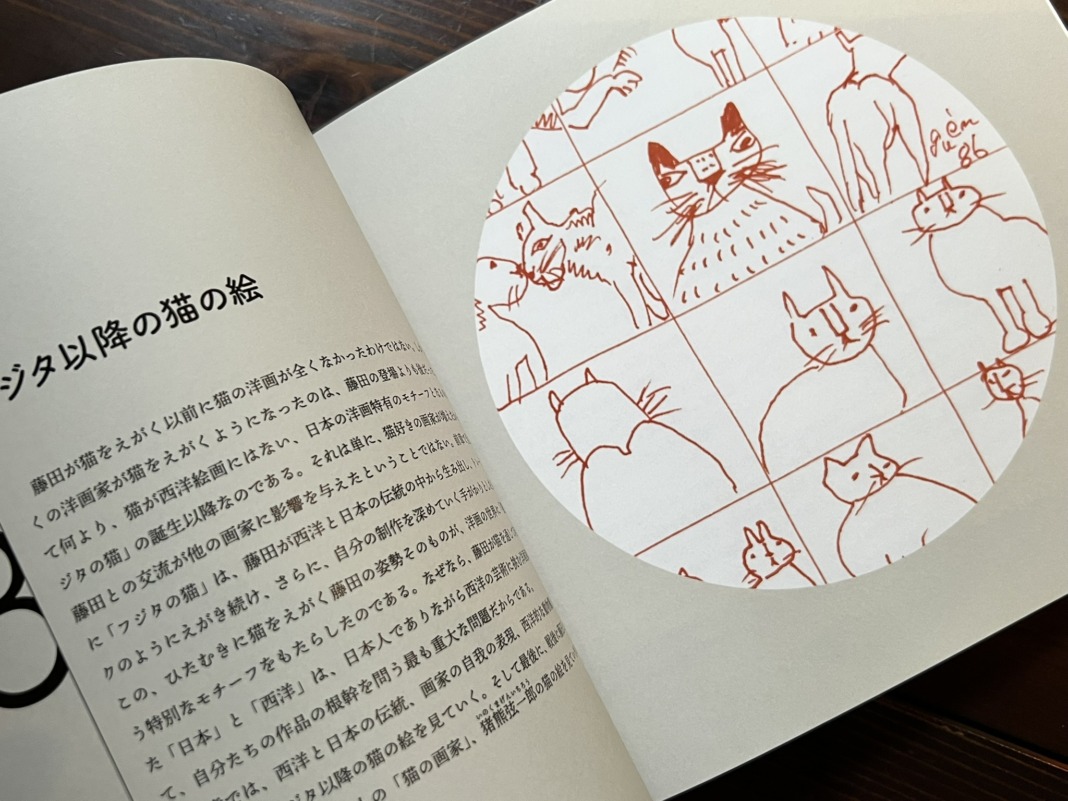 ジタ以降の猫の絵
藤田が猫をえがく以前に猫の洋画が全くなかったわけではない。
くの洋画家が猫をえがくようになったのは、藤田の登場よりも
て何より、猫が西洋絵画にはない、日本の洋画特有のモチーフと
ジタの猫」の誕生以降なのである。それは単に、猫好きの画家が
藤田との交流が他の画家に影響を与えたということではない。
に「フジタの猫」は、藤田が西洋と日本の伝統の中から生み出し、
クのようにえがき続け、さらに、自分の制作を深めていく手がかりと
この、ひたむきに猫をえがく藤田の姿勢そのものが、洋画の世界に
う特別なモチーフをもたらしたのである。なぜなら、藤田が猫を通
た「日本」と「西洋」は、日本人でありながら西洋の芸術に
て、自分たちの作品の根幹を問う最も重大な問題だからである。
では、西洋と日本の伝統、画家の自我の表現、西洋的な
ジタ以降の猫の絵を見ていく。そして最後に、
の「猫の画家」、猪熊弦一郎の猫の絵を見て
いのくまげんいちろう
guén
86